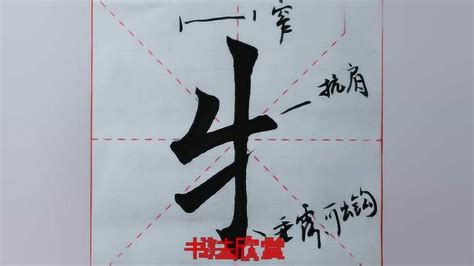 窄
抗肩
牛
垂露可出钩
书法欣赏